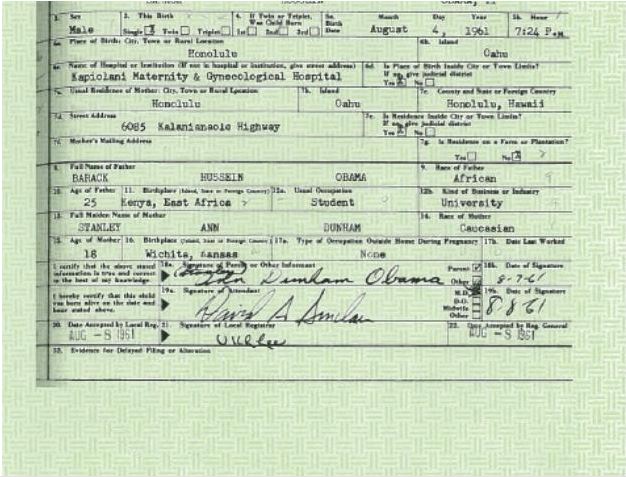 1. Sex 2. This Birth 4. If Twin or Triplet, Was Child Born 5a. Birth Date Month Day Year 5b. Hour
Male Single Twin Triplet 1st 2nd 3rd August 4, 1961 7:24 P.M.
6a. Place of Birth: City, Town or Rural Location 6b. Island
Honolulu Oahu
6c. Name of Hospital or Institution (If not in hospital or institution, give street address) 6d. Is Place of Birth Inside City or Town Limits? If no, give judicial district
Kapiolani Maternity & Gynecological Hospital Yes No
7a. Usual Residence of Mother: City, Town or Rural Location 7b. Island 7c. County and State or Foreign Country
Honolulu Oahu Honolulu, Hawaii
7d. Street Address 7e. Is Residence Inside City or Town Limits? If no, give judicial district
6085 Kalanianaole Highway Yes No
7f. Mother's Mailing Address 7g. Is Residence on a Farm or Plantation?
Yes No
8. Full Name of Father 9. Race of Father
BARACK HUSSEIN OBAMA African
10. Age of Father 11. Birthplace (Island, State or Foreign Country) 12a. Usual Occupation 12b. Kind of Business or Industry
25 Kenya, East Africa Student University
13. Full Maiden Name of Mother 14. Race of Mother
STANLEY ANN DUNHAM Caucasian
15. Age of Mother 16. Birthplace (Island, State or Foreign Country) 17a. Type of Occupation Outside Home During Pregnancy 17b. Date Last Worked
18 Wichita, Kansas None
I certify that the above stated information is true and correct to the best of my knowledge. 18a. Signature of Parent or Other Informant Parent Other 18b. Date of Signature
(Stanley) Ann Dunham Obama 8-7-61
I hereby certify that this child was born alive on the date and hour stated above. 19a. Signature of Attendant M.D. D.O. Midwife Other 19b. Date of Signature
David A Sinclair 8-8-61
20. Date Accepted by Local Reg. 21. Signature of Local Registrar 22. Date Accepted by Reg. General
AUG -8 1961 AUG -8 1961
23. Evidence for Delayed Filing or Alteration